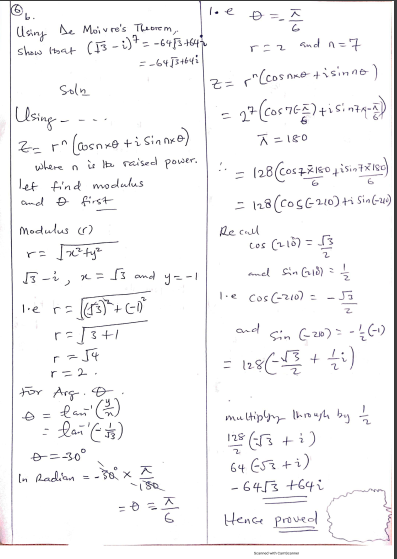 6 b.
Using De Moivre's Theorem,
show that (√3 - i)^7 = -64√3+64i
= -64√3+64i
Soln
Using - - - -
Z = r^n (cos nxθ + i Sin nxθ)
where n is the raised power.
Let find modulus
and θ first
Modulus (r)
r = √x²+y²
√3 - i, x = √3 and y = -1
I.e r = √(√3)² + (-1)²
r = √3 + 1
r = √4
r = 2.
For Arg. θ
θ = tan⁻¹(y/x)
= tan⁻¹(-1/√3)
θ = -30°
In Radian = -30° × π/180
= θ = π/6
I.e θ = -π/6
r = 2 and n = 7
Z = r^n (cos nxθ + i sin nθ)
= 2^7 (Cos 7(-π/6) + i Sin 7x-π/6)
π = 180
∴ = 128 (cos 7x180/6 + i sin 7x180/6)
= 128 (cos(-210) + i Sin(-210)
Recall
cos (210) = √3/2
and sin (210) = 1/2
I.e Cos(-210) = -√3/2
and Sin (-210) = -1/2(-1)
= 128 (-√3/2 + 1/2 i)
multiply through by 1/2
128/2 (-√3 + i)
64 (-√3 + i)
-64√3 + 64i
Hence proved
Scanned with CamScanner